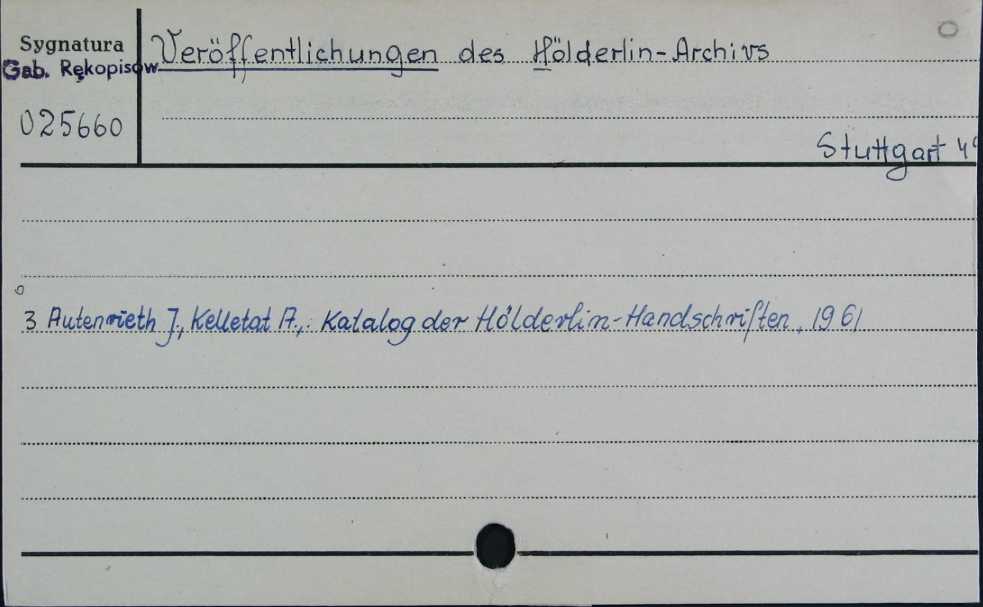 Sygnatura
Gab. Rękopisów
025660
Veröffentlichungen des Hölderlin-Archivs
Stuttgart 4°
3 Autenrieth J., Kelletat A.,: Katalog der Hölderlin-Handschriften, 1961